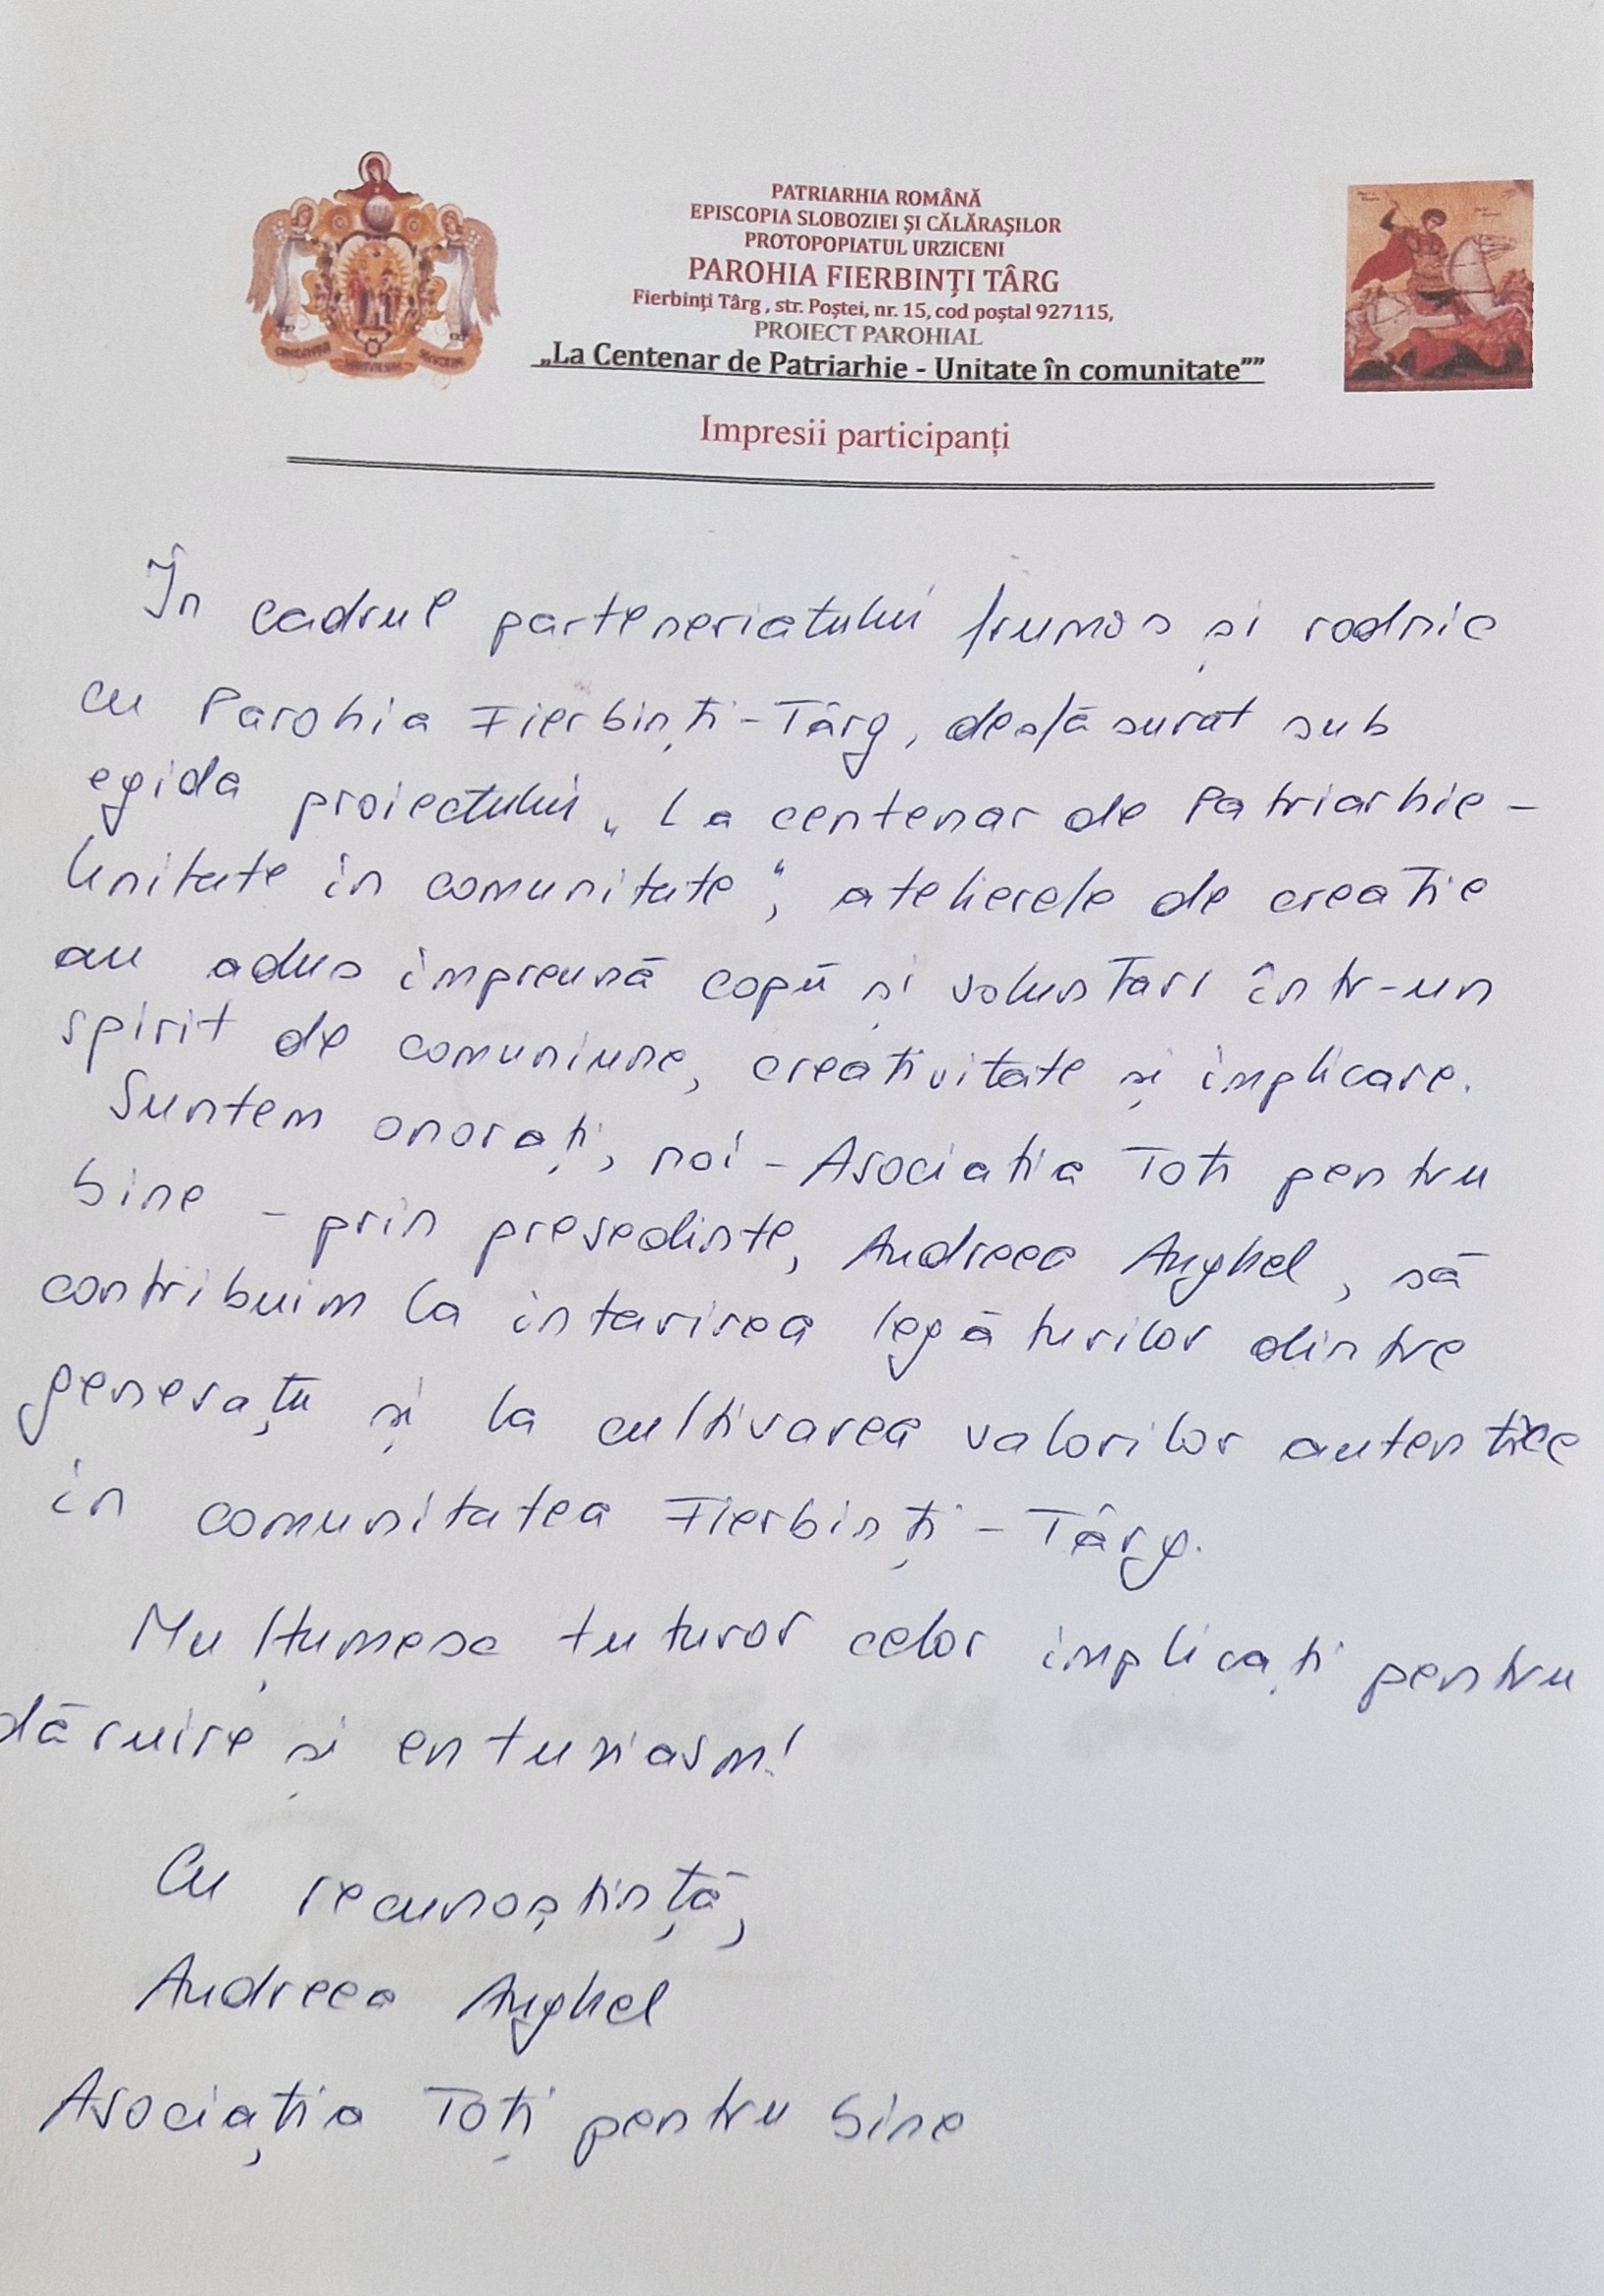 PATRIARHIA ROMÂNĂ
EPISCOPIA SLOBOZIEI ŞI CĂLĂRAŞILOR
PROTOPOPIATUL URZICENI
PAROHIA FIERBINŢI TÂRG
Fierbinţi Târg , str. Poştei, nr. 15, cod poştal 927115,
PROIECT PAROHIAL
„La Centenar de Patriarhie - Unitate în comunitate””
Impresii participanți
În cadrul parteneriatului frumos și rodnic
cu Parohia Fierbinți-Târg, desfășurat sub
egida proiectului „La centenar de Patriarhie -
Unitate in comunitate”, atelierele de creatie
au adus impreună copii și voluntari într-un
spirit de comuniune, creativitate și implicare.
Suntem onorați, noi - Asociatia Toti pentru
bine - prin presedinte, Andreea Anghel, să
contribuim la intarirea legăturilor dintre
generații și la cultivarea valorilor autentice
in comunitatea Fierbinți - Târg.
Mulțumesc tuturor celor implicați pentru
dăruire și entuziasm!
Cu recunoștință,
Andreea Anghel
Asociația Toți pentru bine